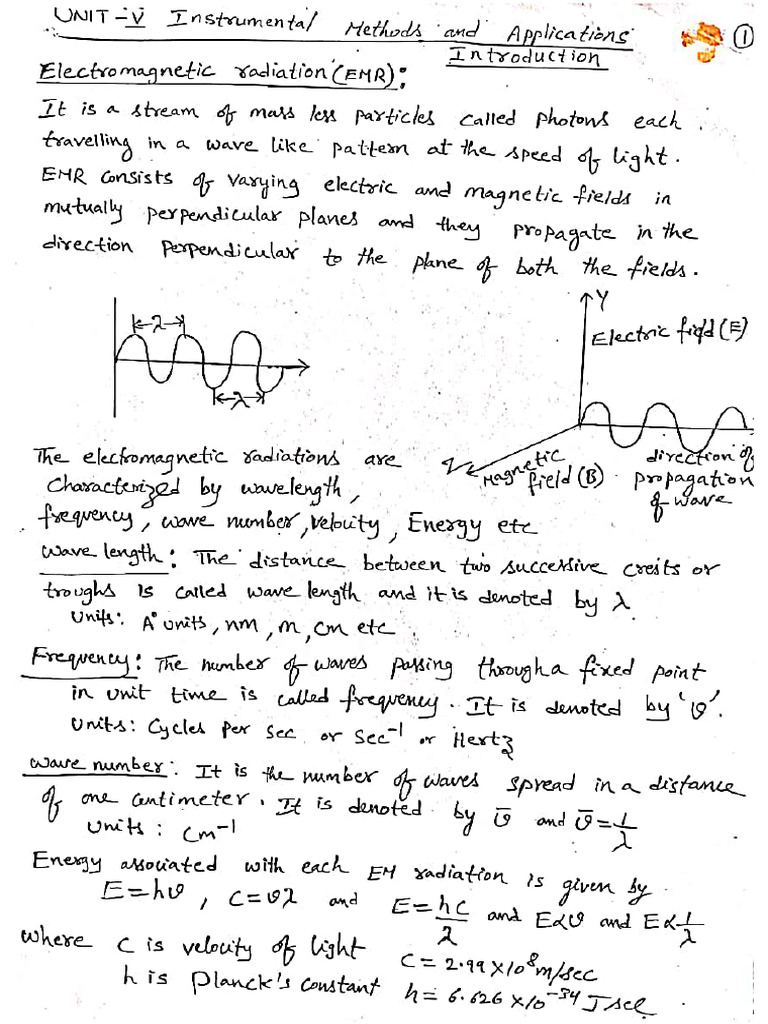 UNIT-V Instrumental Methods and Applications
①
Introduction
Electromagnetic radiation (EMR):
It is a stream of mass less particles called photons each
travelling in a wave like pattern at the speed of light.
EMR consists of varying electric and magnetic fields in
mutually perpendicular planes and they propagate in the
direction perpendicular to the plane of both the fields.
λ
λ
Y
Electric field (E)
Z
Magnetic field (B)
direction of
propagation
of wave
The electromagnetic radiations are
Characterized by wavelength,
frequency, wave number, velocity, Energy etc
Wave length: The distance between two successive crests or
troughs is called wave length and it is denoted by λ
Units: A° units, nm, m, cm etc.
Frequency: The number of waves passing through a fixed point
in unit time is called frequency. It is denoted by 'ϑ'.
Units: Cycles per sec or Sec⁻¹ or Hertz
Wave number: It is the number of waves spread in a distance
of one centimeter. It is denoted by ϑ̄ and ϑ̄ = 1/λ
Units: cm⁻¹
Energy associated with each EM radiation is given by
E=hϑ, C=ϑλ and E=hc/λ and E∝ϑ and E∝1/λ
where C is velocity of light C = 2.99×10⁸ m/sec
h is Planck's constant h = 6.626×10⁻³⁴ J sec